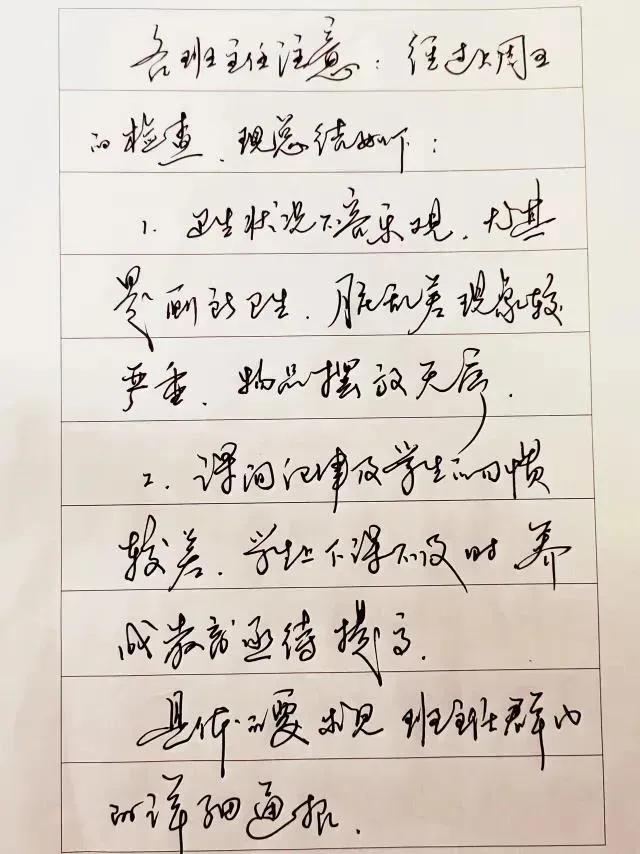 各班主任注意：经过上周五
的检查，现总结如下：
1、卫生状况不容乐观，尤其
是厕所卫生，脏乱差现象较
严重，物品摆放无序。
2、课间纪律及学生的习惯
较差，学生上下课不及时 养
成教育亟待提高。
具体的要求见班主任群内
的详细通报。